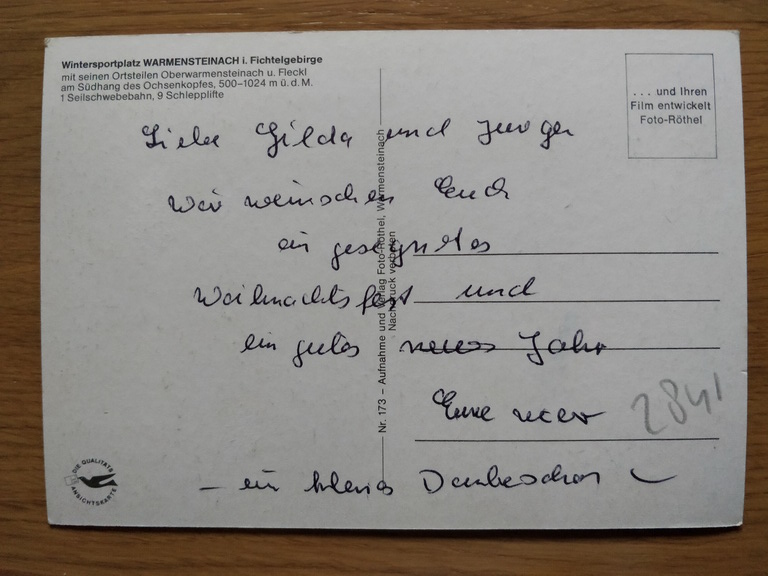 Wintersportplatz WARMENSTEINACH i. Fichtelgebirge
mit seinen Ortsteilen Oberwarmensteinach u. Fleckl
am Südhang des Ochsenkopfes, 500–1024 m ü. d. M.
1 Seilschwebebahn, 9 Schlepplifte
. . . und Ihren
Film entwickelt
Foto-Röthel
Liebe Gilda und
Wir wünschen Euch
ein gesegnetes
Weihnachtsfest und
ein gutes neues Jahr
Eure
– ein kleines Dankeschön –
2841
Nr. 173 – Aufnahme und Verlag Foto-Röthel, Warmensteinach
Nachdruck verboten
DIE QUALITÄTS
ANSICHTSKARTE